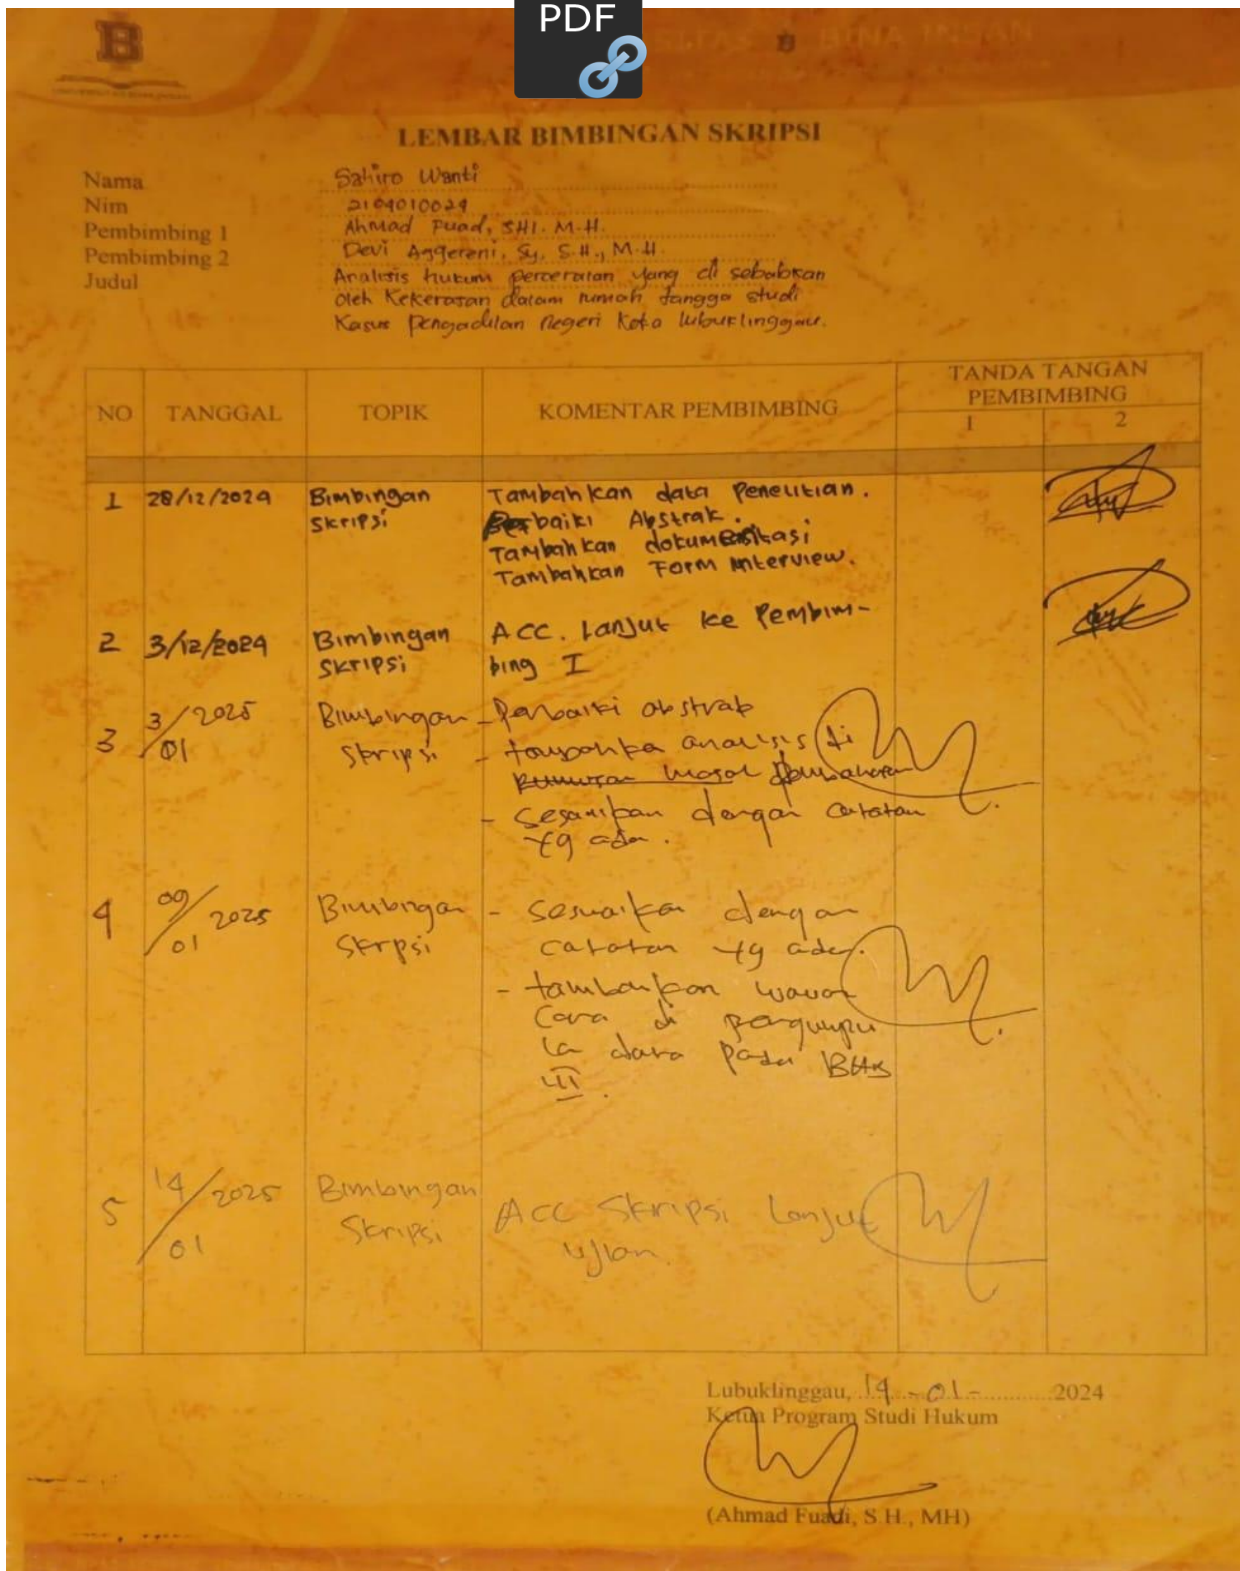 PDF
B BINA INSAN
LEMBAR BIMBINGAN SKRIPSI
Nama Sahiro Wanti
Nim 2104010024
Pembimbing 1 Ahmad Fuad, SHI. M.H.
Pembimbing 2 Devi Aggereni, Sy. S.H., M.H.
Judul Analisis hukum perceraian yang di sebabkan
oleh Kekerasan dalam rumah tangga studi
Kasus Pengadilan Negeri Kota lubuklinggau.
NO TANGGAL TOPIK KOMENTAR PEMBIMBING TANDA TANGAN PEMBIMBING
1 2
1 28/12/2024 Bimbingan Skripsi Tambahkan data Penelitian.
Perbaiki Abstrak.
Tambahkan dokumentasi
Tambahkan Form Interview.
2 3/12/2024 Bimbingan Skripsi ACC. Lanjut ke Pembim-
bing I
3 3/01 2025 Bimbingan Skripsi - Perbaiki abstrak
- tambahka analisis di
rumusan masal pembahasan
- Sesuaikan dengan catatan
yg ada.
4 09/01 2025 Bimbingan Skrpsi - Sesuaikan dengan
catatan yg ada.
- tambahkan wawan
cara di pengumpu
la data pada BAB
III.
5 14/01 2025 Bimbingan Skripsi ACC Skripsi Lanjut
ujian.
Lubuklinggau, 14 - 01 - 2024
Ketua Program Studi Hukum
(Ahmad Fuadi, S.H., MH)